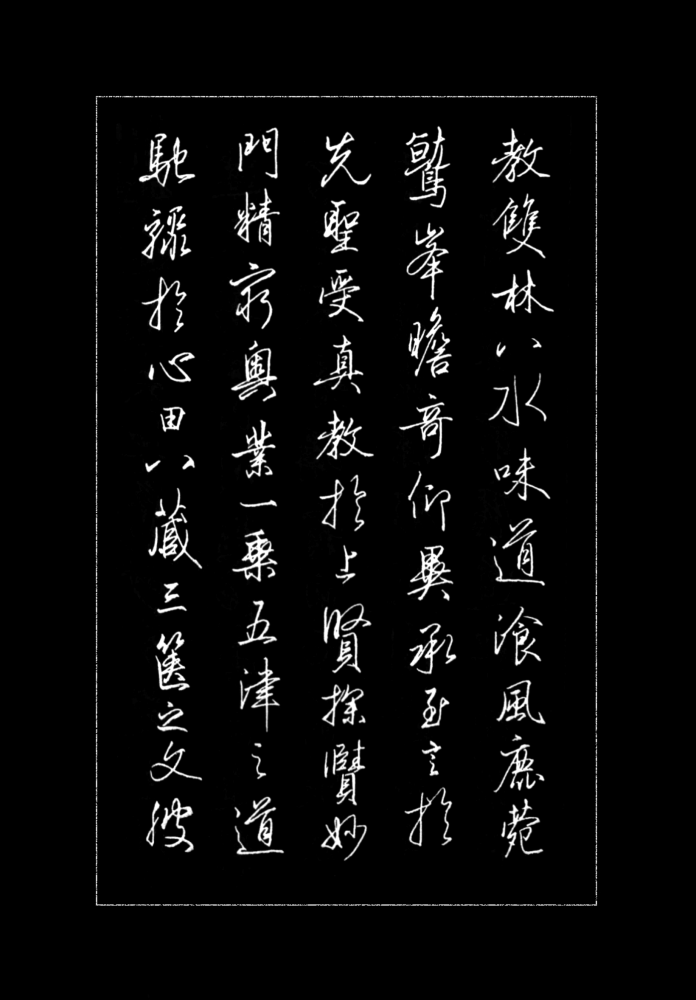 教雙林八水味道湌風鹿菀
鷲峯瞻奇仰異承至言於
先聖受真教於上賢探賾妙
門精窮奧業一乘五律之道
馳驟於心田八藏三篋之文波